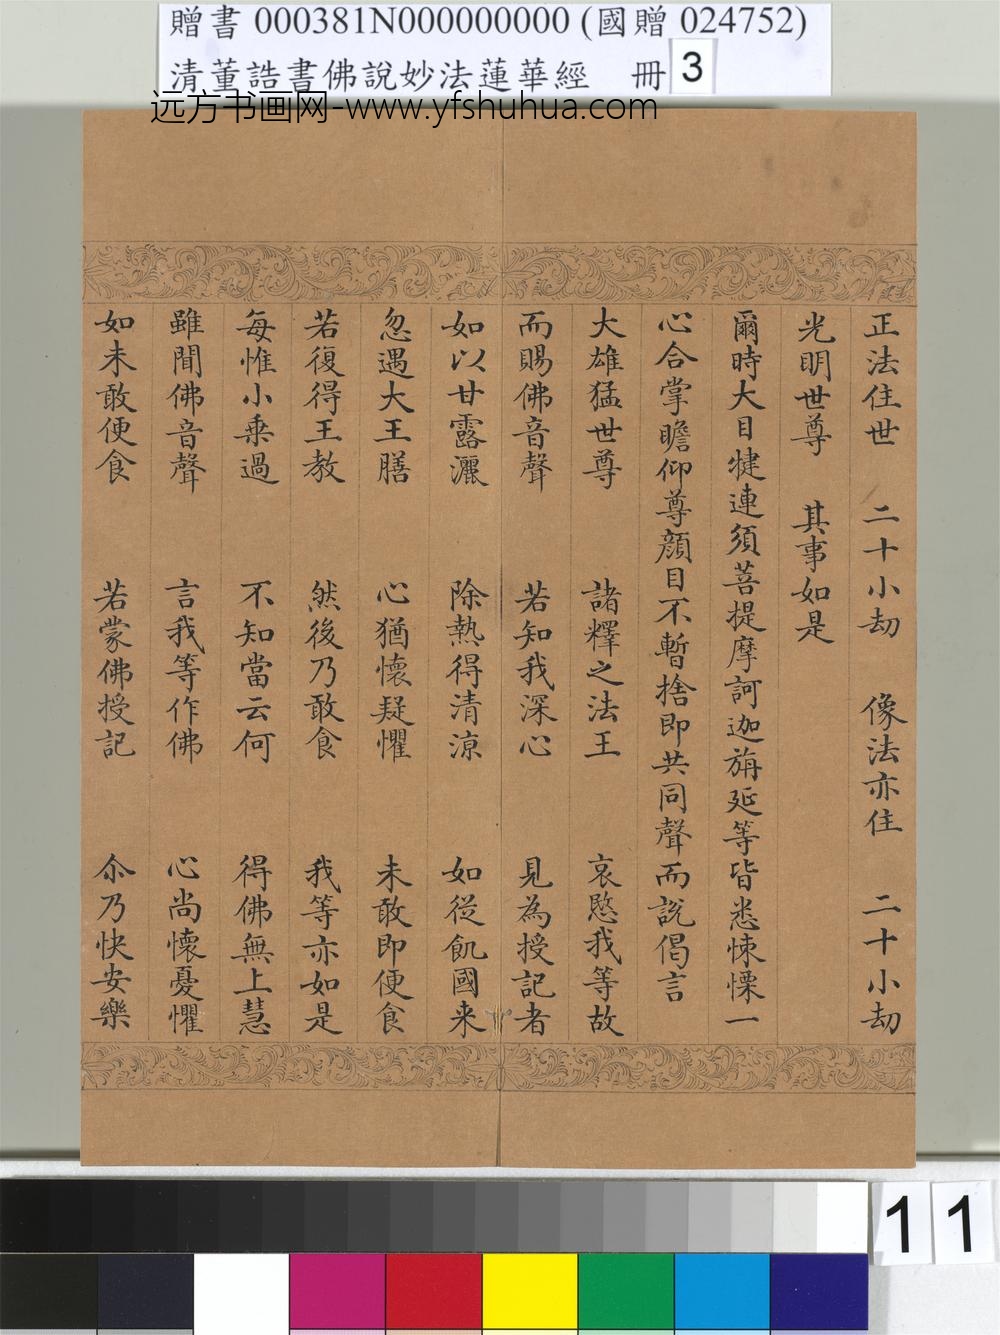 贈書 000381N000000000 (國贈 024752)
清董誥書佛說妙法蓮華經 冊 3
远方书画网-www.yfshuhua.com
正法住世 二十小劫 像法亦住 二十小劫
光明世尊 其事如是
爾時大目犍連須菩提摩訶迦旃延等皆悉悚慄一
心合掌瞻仰尊顏目不暫捨即共同聲而說偈言
大雄猛世尊 諸釋之法王 哀愍我等故
而賜佛音聲 若知我深心 見為授記者
如以甘露灑 除熱得清涼 如從飢國来
忽遇大王膳 心猶懷疑懼 未敢即便食
若復得王教 然後乃敢食 我等亦如是
每惟小乗過 不知當云何 得佛無上慧
雖聞佛音聲 言我等作佛 心尚懷憂懼
如未敢便食 若蒙佛授記 尒乃快安樂
11